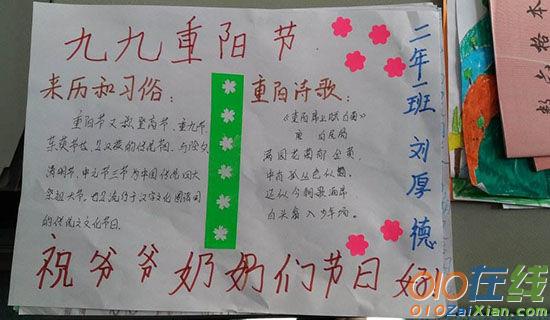 九九重阳节
来历和习俗：
重阳节又叫登高节、重九节、
茱萸节, 是汉族的传统节日, 与除夕、
清明节、中元节三节为中国传统四大
祭祖大节。也是流行于汉字文化圈诸国
的传统文化节日。
重阳诗歌：
《重阳席上赋白菊》
唐 白居易
满园花菊郁金黄,
中有孤丛色似霜。
还似今朝歌酒席
白头翁入少年场。
二年一班 刘厚德
祝爷爷奶奶们节日好
数学格本
010在线
010ZaiXian.com